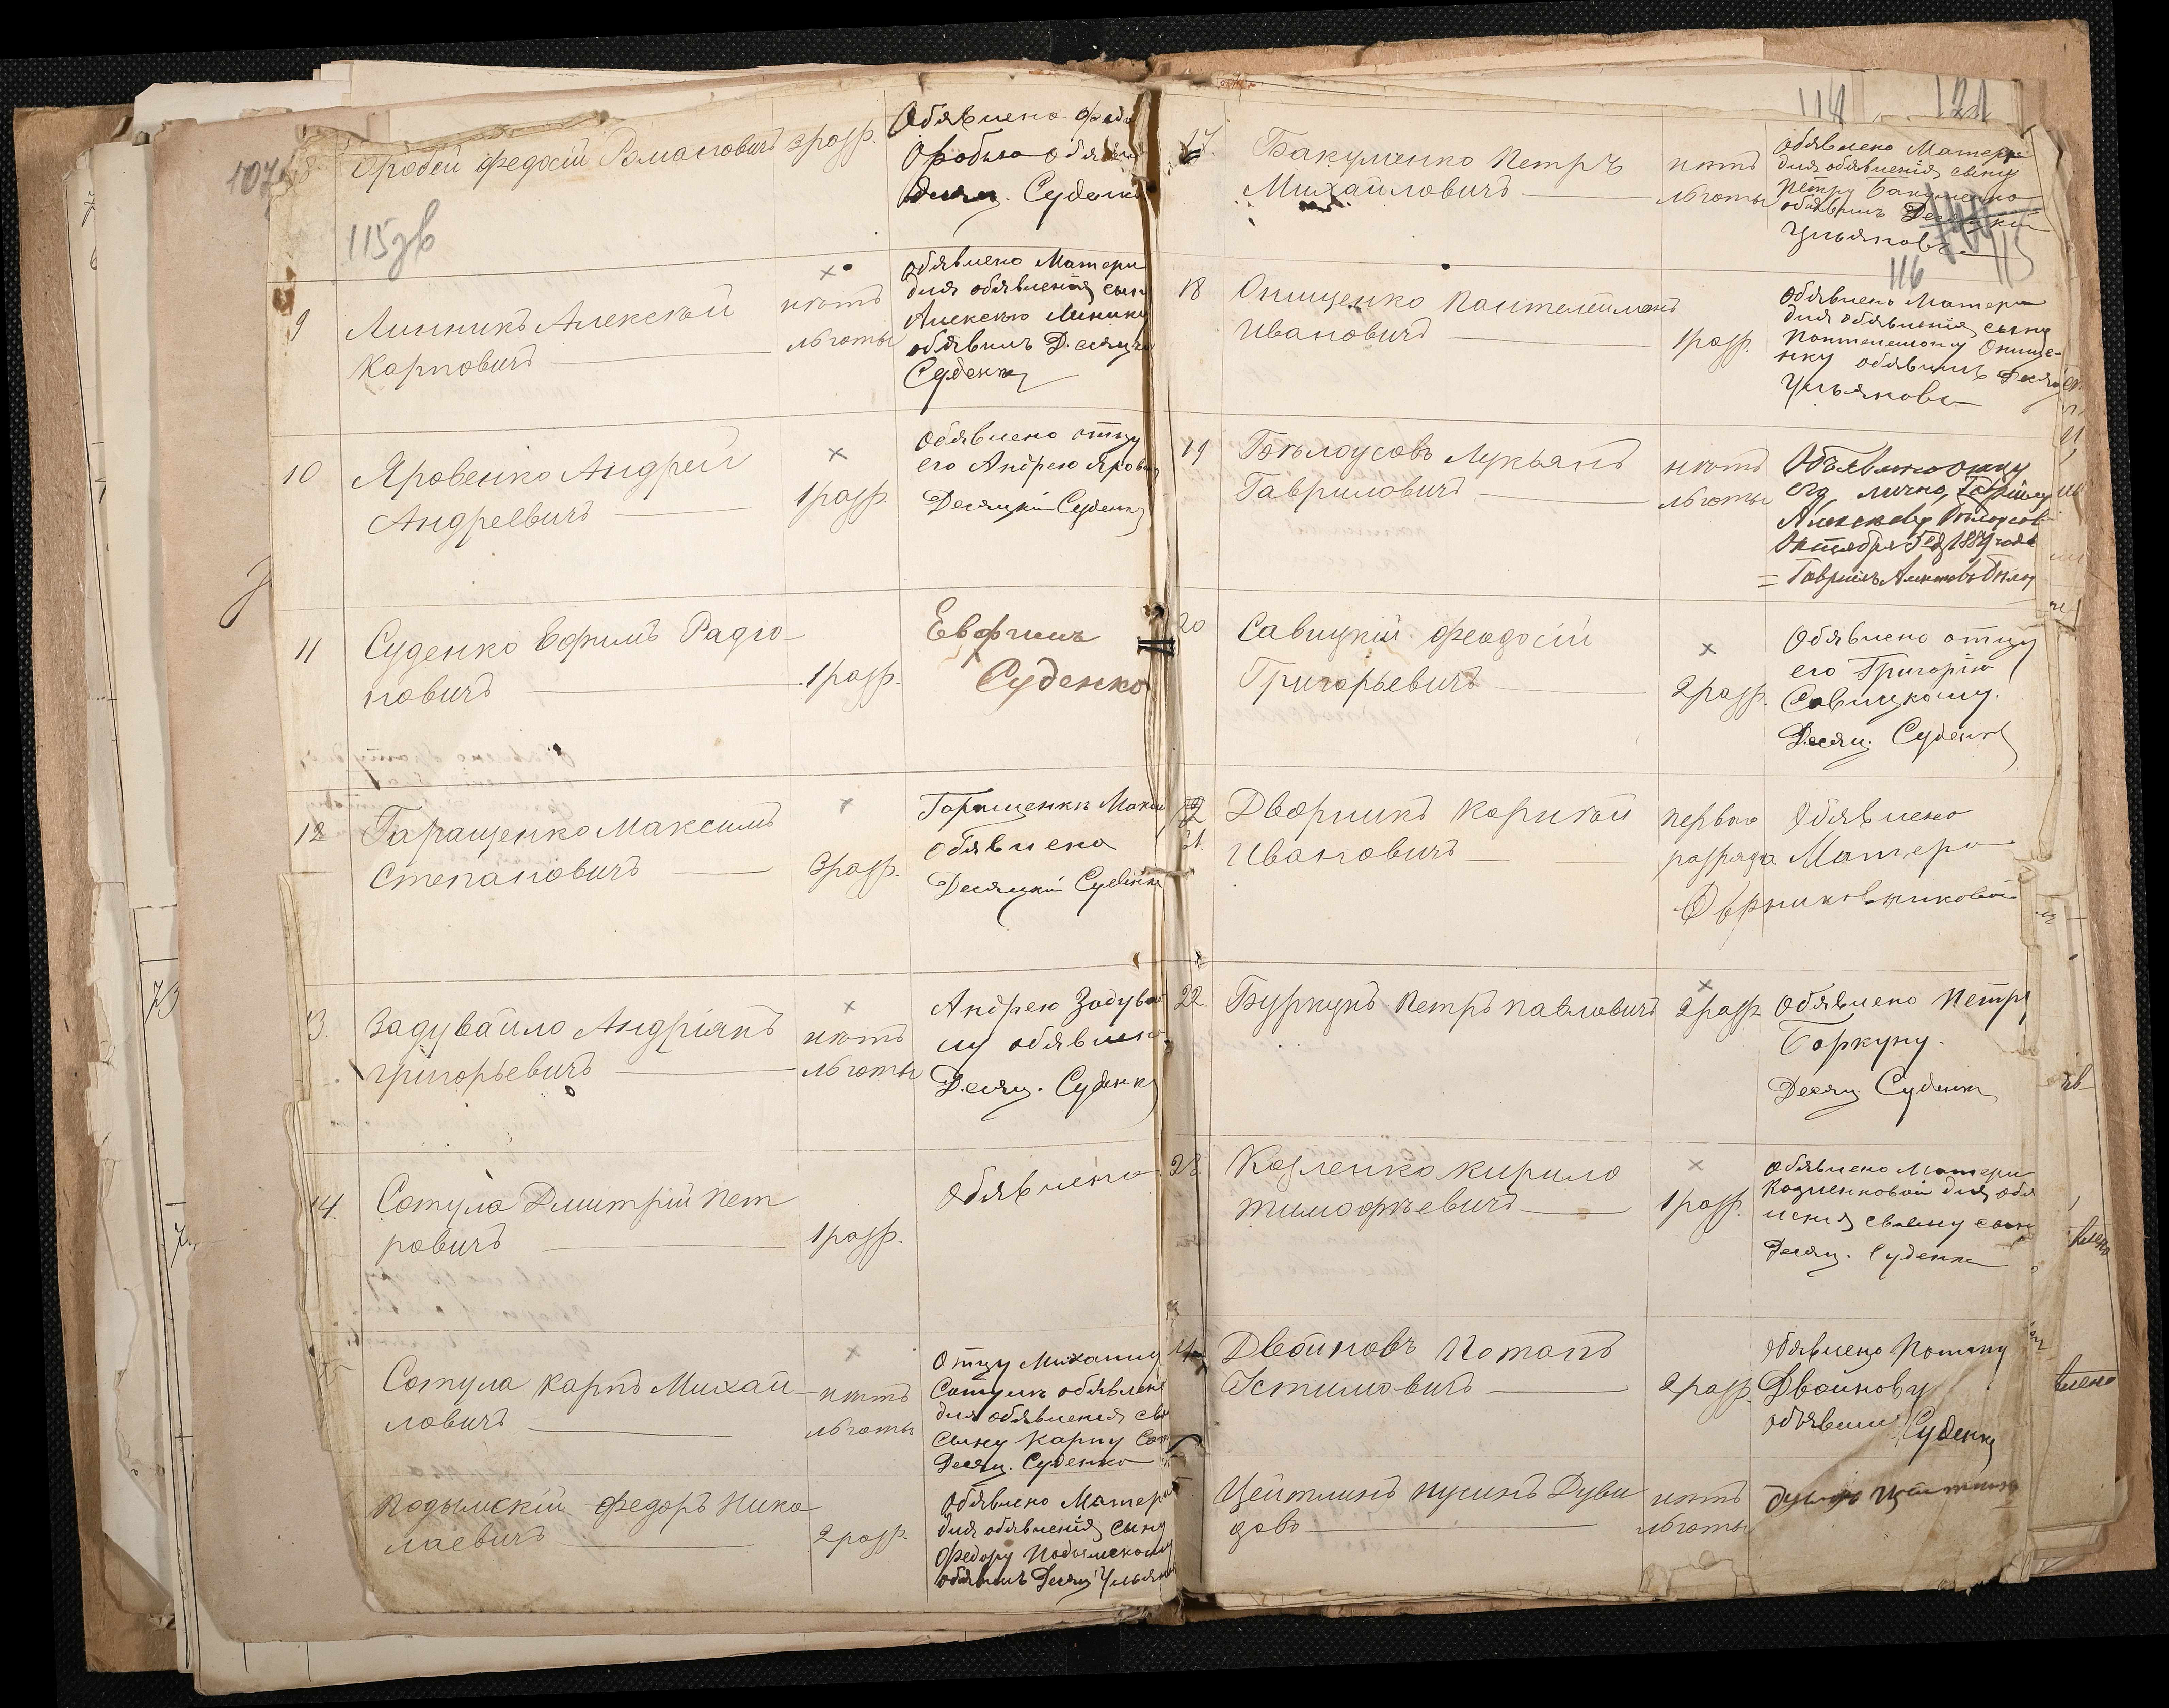 107
8
Оробей Федосій Романовичъ 3 разр.
Обявлено
Оробью
Десяц. Суденко
115 зв
9
Линникъ Алексѣй
Карповичъ
×
нѣтъ
льготы
обявлено Матери
для обявленія сыну
Алексѣю Линнику
обявилъ Десяцкій
Суденко
10
Яровенко Андрей
Андреевичъ
×
1 разр.
обявлено отцу
его Андрею
Десяцкій Суденко
11
Суденко Ефимъ Радіо-
новичъ
1 разр.
Евфимъ
Суденко
12
Гаращенко Максимъ
Степановичъ
×
3 разр.
Гаращенкѣ
обявлено
Десяцкій Суденко
13.
Задувайло Андріянъ
Григорьевичъ
×
нѣтъ
льготы
Андрею
му обявлено
Десяц. Суденко
14.
Сотула Дмитрій Пет
ровичъ
1 разр.
обявлено
15
Сотула Карпъ Михай
ловичъ
×
нѣтъ
льготы
Отцу Михаилу
Сотулѣ обявлено
для обявленія
сыну Карпу
Десяц. Суденко
Подымскій Федоръ Нико
лаевичъ
2 разр.
обявлено Матери
для обявленія сыну
Федору Подымскому
обявилъ Десяц.
114 121
17.
Бакуменко Петръ
Михайловичъ
нѣтъ
льготы
обявлено Матери
для обявленія сыну
Петру Бакуменко
обявилъ Десяцкій
Ульяновъ
115
116
18
Онищенко Пантелеймонъ
Ивановичъ
1 разр.
обявлено Матери
для обявленія сыну
Онище-
нку обявилъ Десяц
Ульяновъ
19
Бѣлоусовъ Лукьянъ
Гавриловичъ
нѣтъ
льготы
Объявлено отцу
его лично, Гаврилу
Октября 5 1884 года
20
Савицкій Феодосій
Григорьевичъ
×
2 разр.
обявлено отцу
его Григорію
Савицкому.
Десяц. Суденко
21.
Дворникъ Корнѣй
Ивановичъ
перваго
разряда
обявлено
Матери
22.
Буркунъ Петръ Павловичъ
×
2 разр.
обявлено Петру
Боркуну.
Десяц. Суденко
23
Козленко Кирило
Тимофѣевичъ
×
1 разр.
обявлено Матери
Козленковой для
своему сыну
Десяц. Суденко
Двойновъ Потапъ
Устимовичъ
2 разр.
обявлено Потапу
Двойнову
объявилъ Суденко
Цейтлинъ Нусинъ Дуви
довъ
нѣтъ
льготы